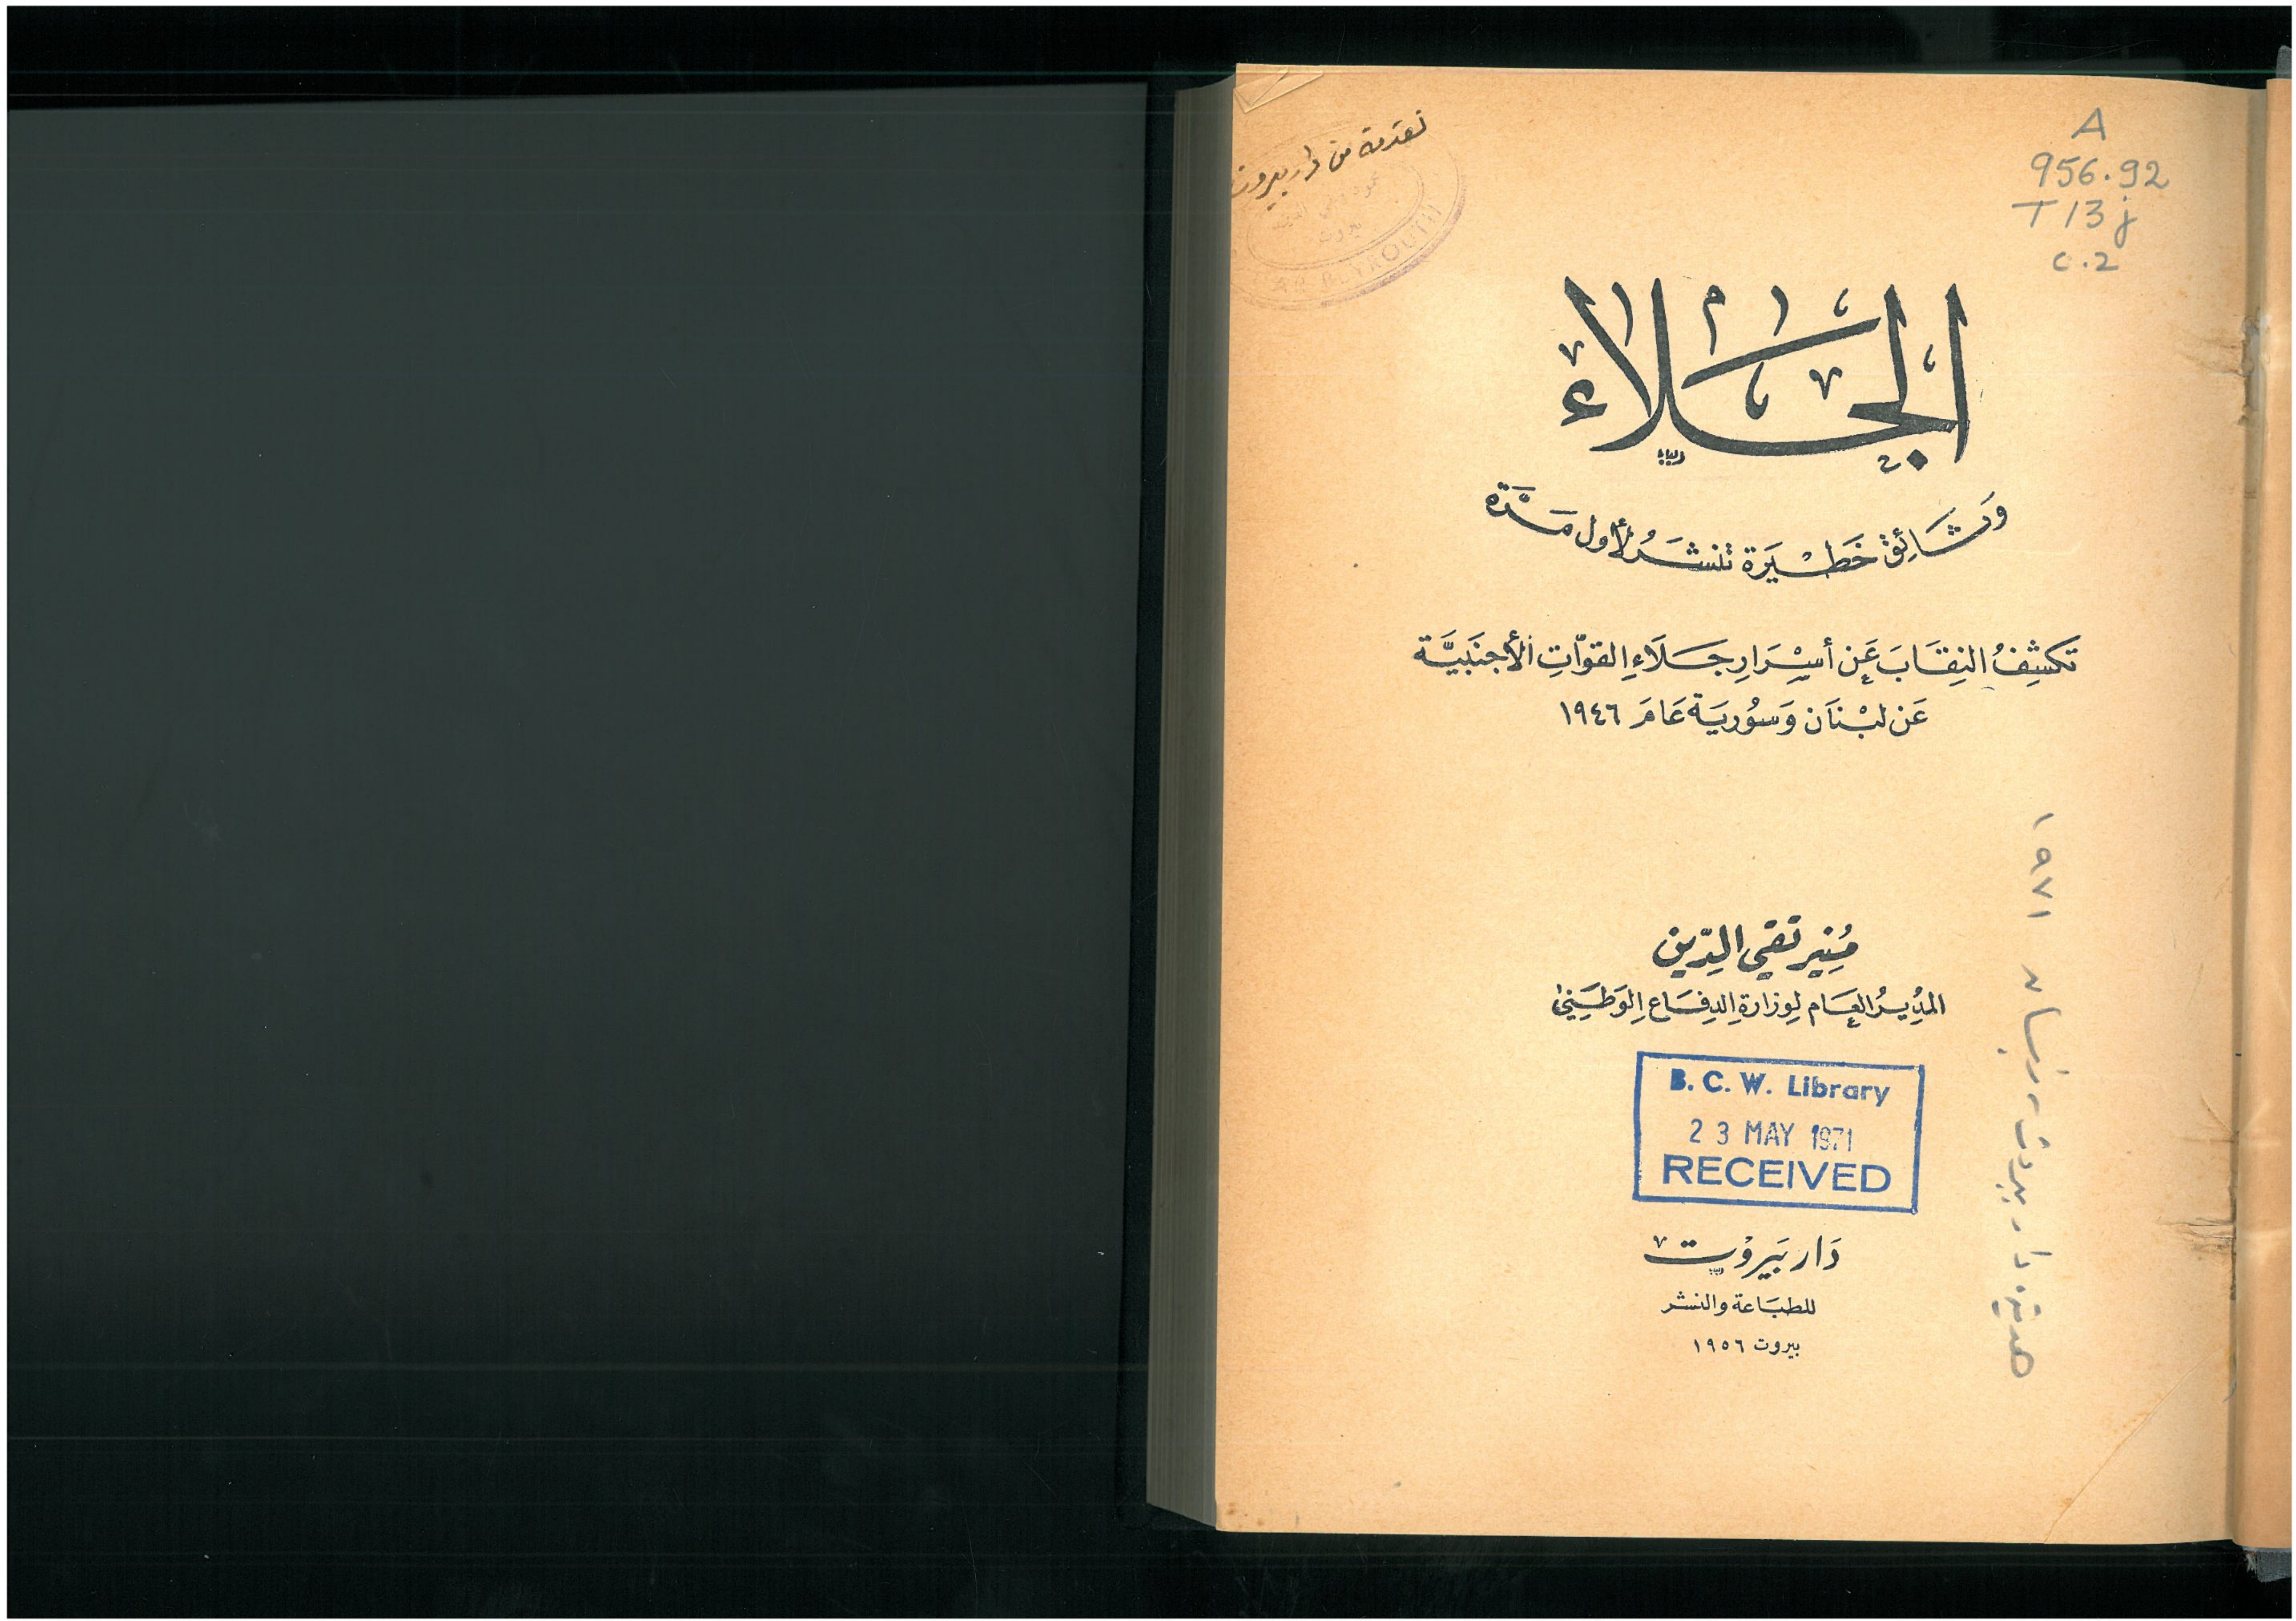 تقدمة من دار بيروت
بيروت
DAR BEYROUTH
A
956.92
T13j
c.2
الجلاء
وثائق خطيرة تنشر لأول مرة
تكشف النقاب عن أسرار جلاء القوات الأجنبية
عن لبنان وسورية عام ١٩٤٦
منير تقي الدين
المدير العام لوزارة الدفاع الوطني
B. C. W. Library
23 MAY 1971
RECEIVED
دار بيروت
للطباعة والنشر
بيروت ١٩٥٦
هدية دار بيروت ١٩٧١